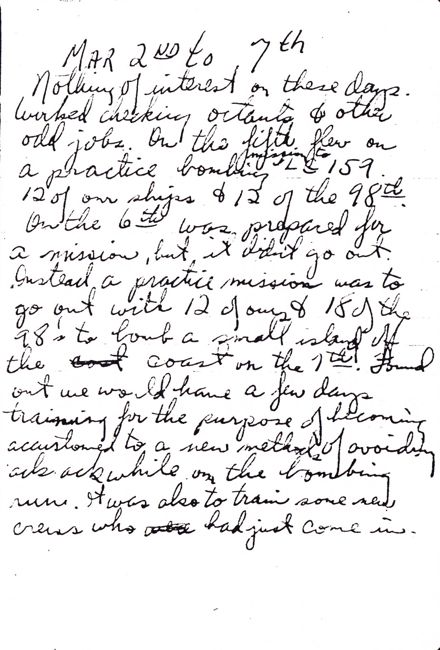 MAR 2ND to 7th
Nothing of interest on these days.
Worked checking octants & other
odd jobs. On the fifth flew on
a practice bombing mission to L S 159.
12 of our ships & 12 of the 98th.
On the 6th was prepared for
a mission, but it didn't go out.
Instead a practice mission was to
go out with 12 of ours & 18 of the
98's to bomb a small island off
the coast on the 7th. Found
out we would have a few days
training for the purpose of becoming
accustomed to a new method of avoiding
ack ack while on the bombing
run. It was also to train some new
crews who had just come in.